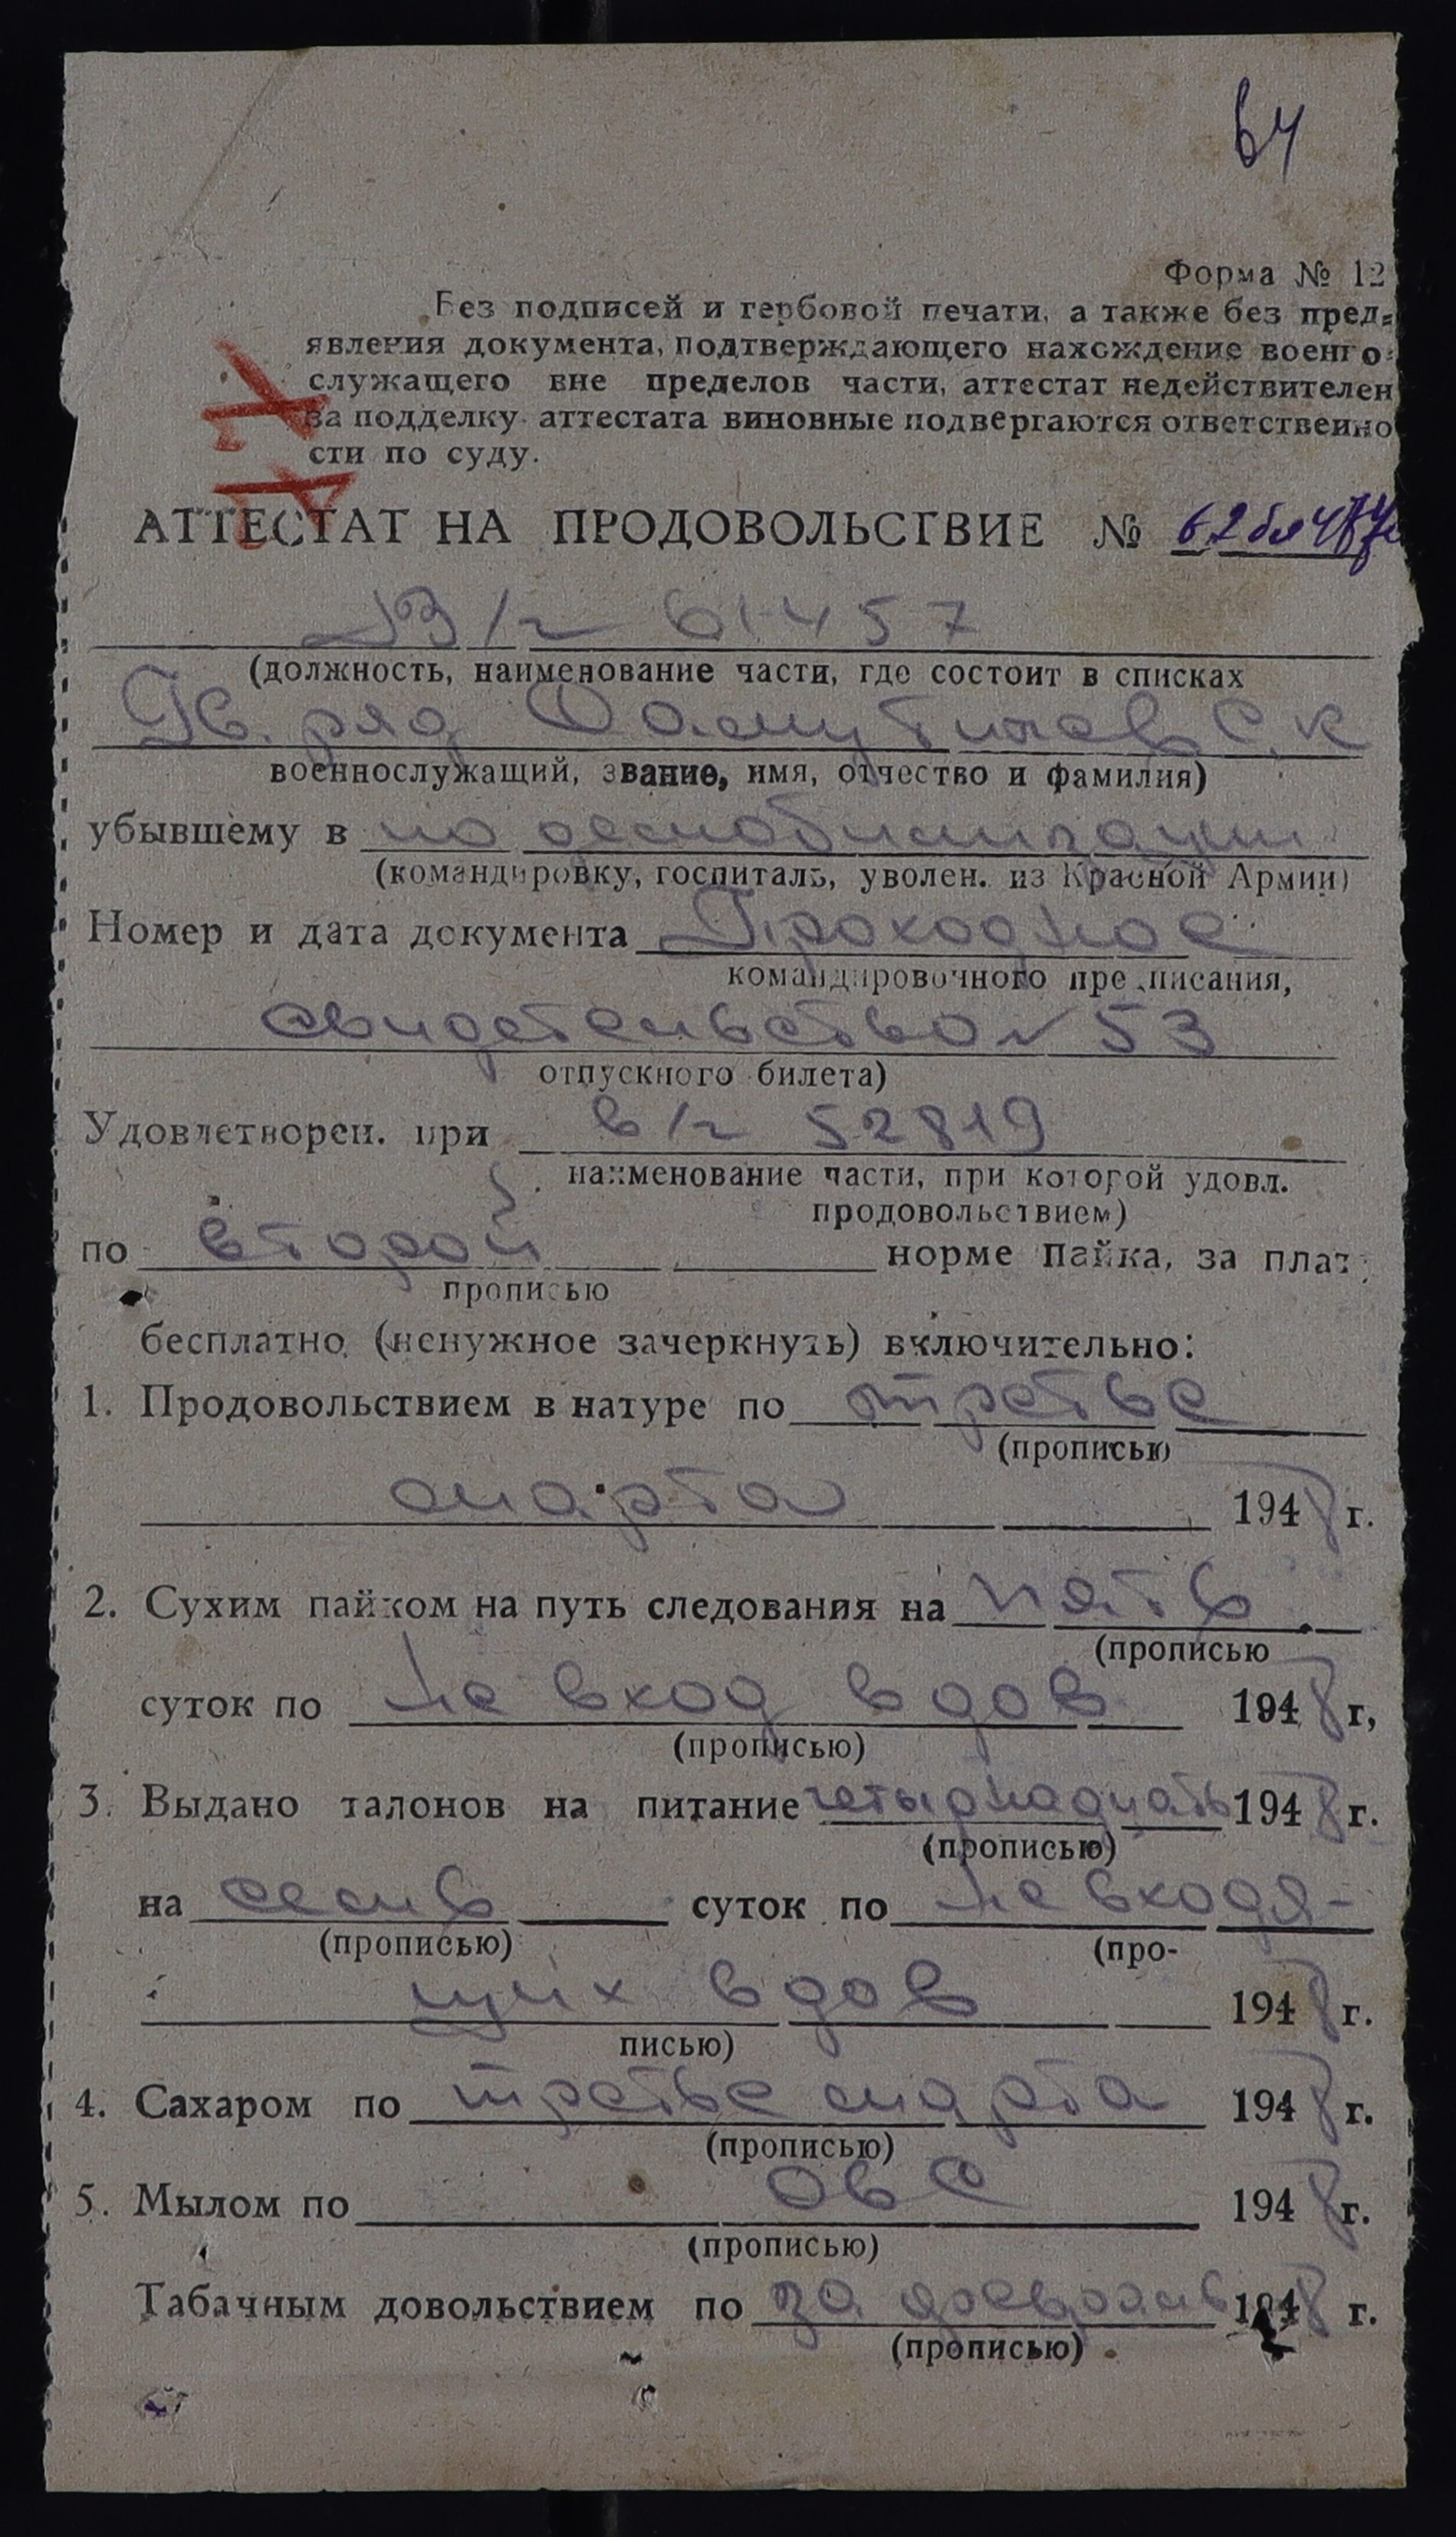 64
Форма № 12
Без подписей и гербовой печати, а также без пред=
явления документа, подтверждающего нахождение военно=
служащего вне пределов части, аттестат недействителен
за подделку аттестата виновные подвергаются ответственно
сти по суду.
АТТЕСТАТ НА ПРОДОВОЛЬСТВИЕ №
В/ч 61457
(должность, наименование части, где состоит в списках
Гв. ряд С.К
военнослужащий, звание, имя, отчество и фамилия)
убывшему в по демобилизации
(командировку, госпиталь, уволен. из Красной Армии)
Номер и дата документа Проходное
командировочного предписания,
свидетельство № 53
отпускного билета)
Удовлетворен. при в/ч 52819
наименование части, при которой удовл.
продовольствием)
по второй норме пайка, за плат
прописью
бесплатно (ненужное зачеркнуть) включительно:
1. Продовольствием в натуре по третье
(прописью)
марта 1948 г.
2. Сухим пайком на путь следования на пять
(прописью
суток по не вход в дов 1948 г,
(прописью)
3. Выдано талонов на питание четырнадцать 1948 г.
(прописью)
на семь суток по не входя-
(прописью) (про-
щих в дов 1948 г.
писью)
4. Сахаром по третье марта 1948 г.
(прописью)
5. Мылом по 1948 г.
(прописью)
Табачным довольствием по за февраль 1948 г.
(прописью)